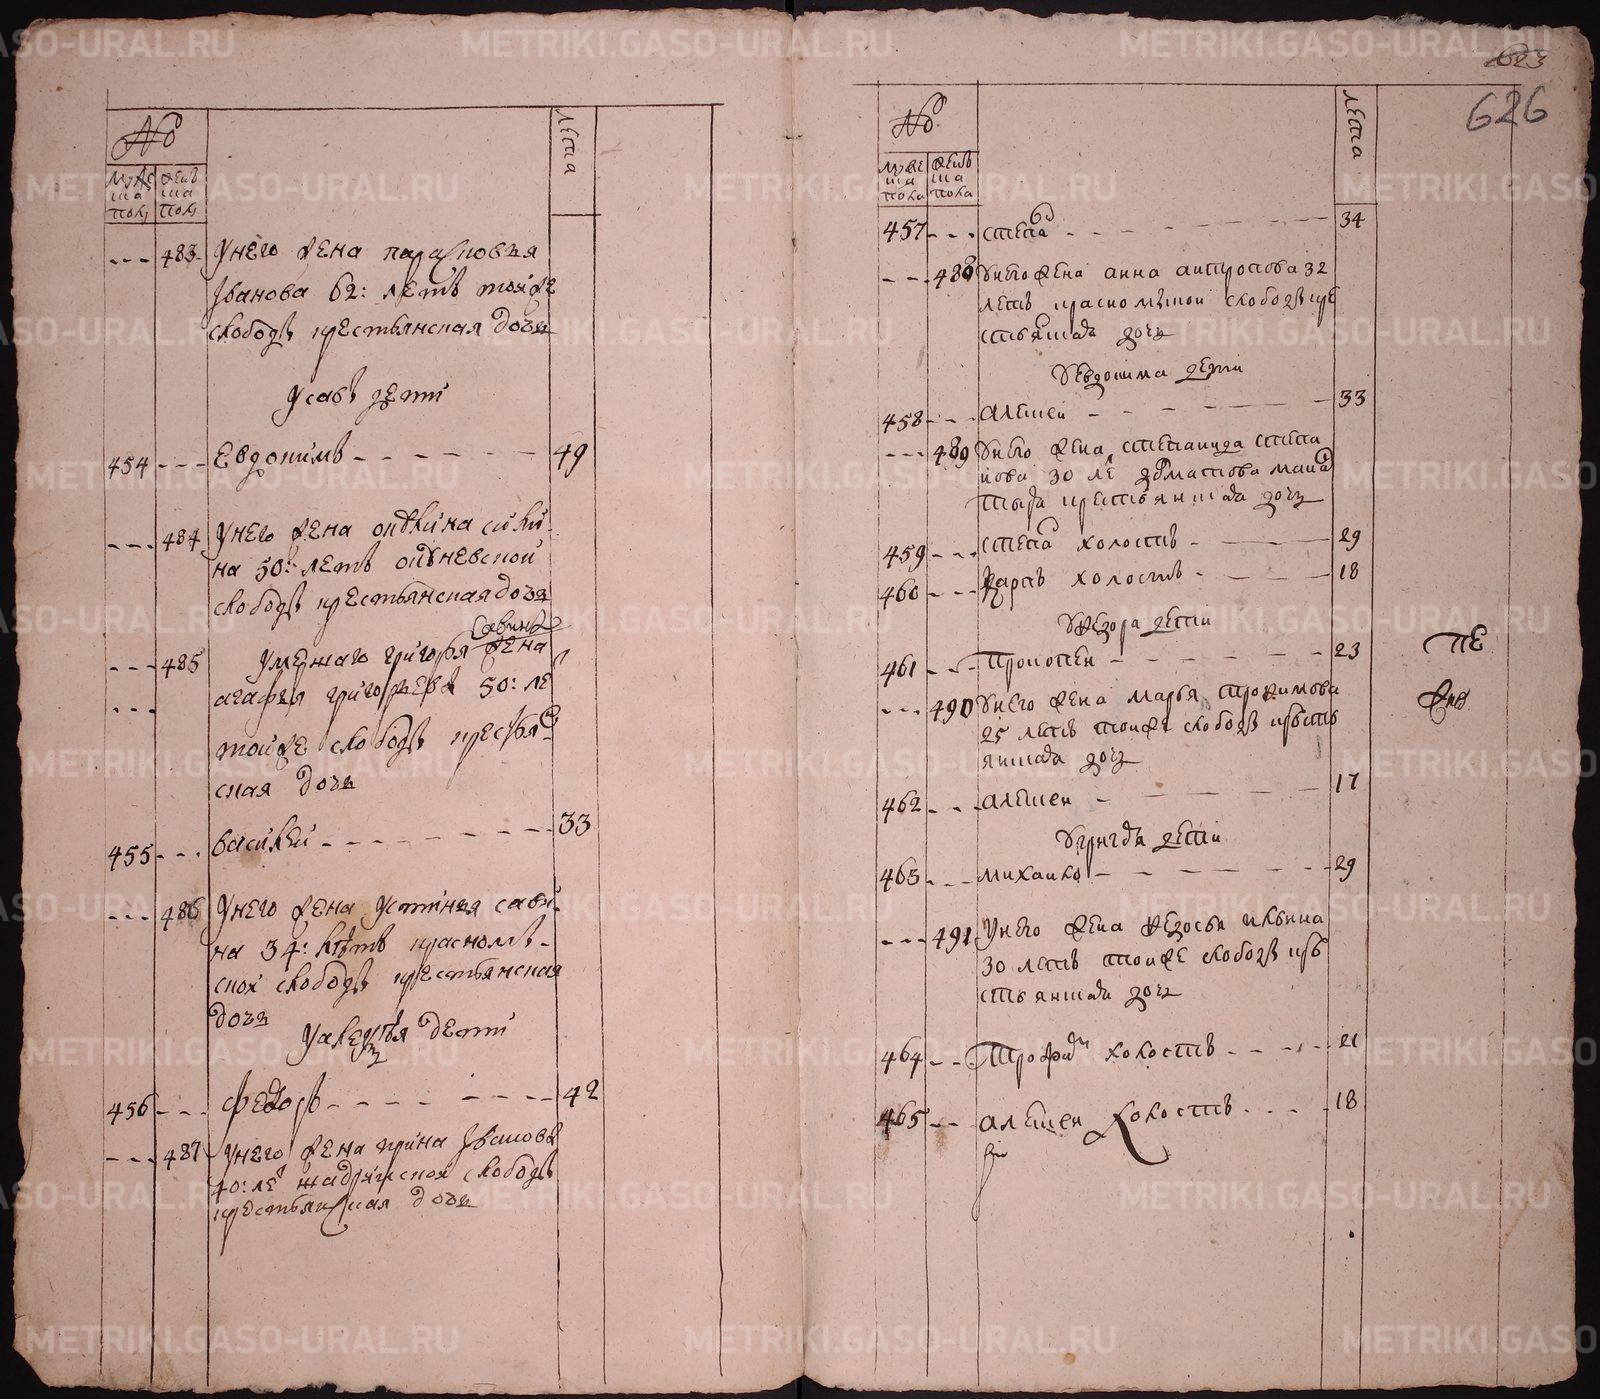 №
мужеска полу
женска полу
лета
--- 483 Унего жена парасковья
Іванова 62: летъ тояже
слободы крестьянская дочь
У савы дети
454 --- Евдокимъ ------ 49
--- 484 Унего жена
на 50: летъ
слободы крестьянская дочь
савина
--- 485 григорья жена
агафья григорьева 50: ле
--- тойже слободы кресьян
ская дочь
455 --- василей ------ 33
--- 486 Унего жена устинья сави
на 34: летъ красномы
ской слободы крестьянская
дочь
дети
456 --- федоръ ------ 42
--- 487 Унего жена ирина Іванова
40: ле слободы
крестьянская дочь
626
№
мужеска полка
женска полка
лета
457 --- степа ------ 34
--- 488 Унего жена анна антропова 32
летъ красномыской слободы кре
стьянска дочь
У евдокима дети
458 --- алексеи ------ 33
--- 489 Унего жена степанида степа
нова 30 ле
крестьянска дочь
459 --- степа холостъ ------ 29
460 --- карпъ холостъ ------ 18
У федора дети
461 --- прокопеи ------ 23 пе
--- 490 Унего жена марья трофимова
25 летъ тойже слободы кресть
янска дочь
462 --- алексеи ------ 17
дети
463 --- михаило ------ 29
--- 491 Унего жена федосья ильина
30 летъ тойже слободы кре
стьянска дочь
464 --- трофим холостъ ------ 21
465 --- алексеи холостъ ------ 18
METRIKI.GASO-URAL.RU